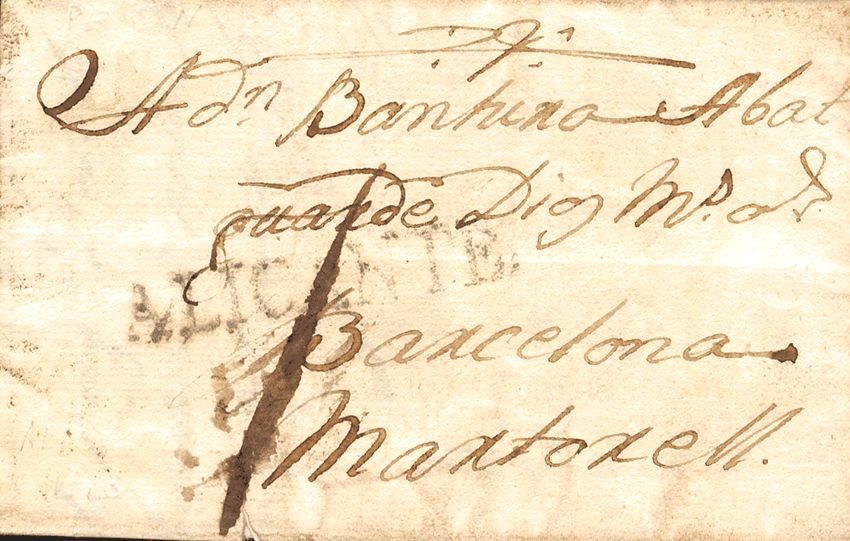 A dn Bantura Abat
guarde Dios Ms. as.
ALICANTE.
Barcelona
Martorell.